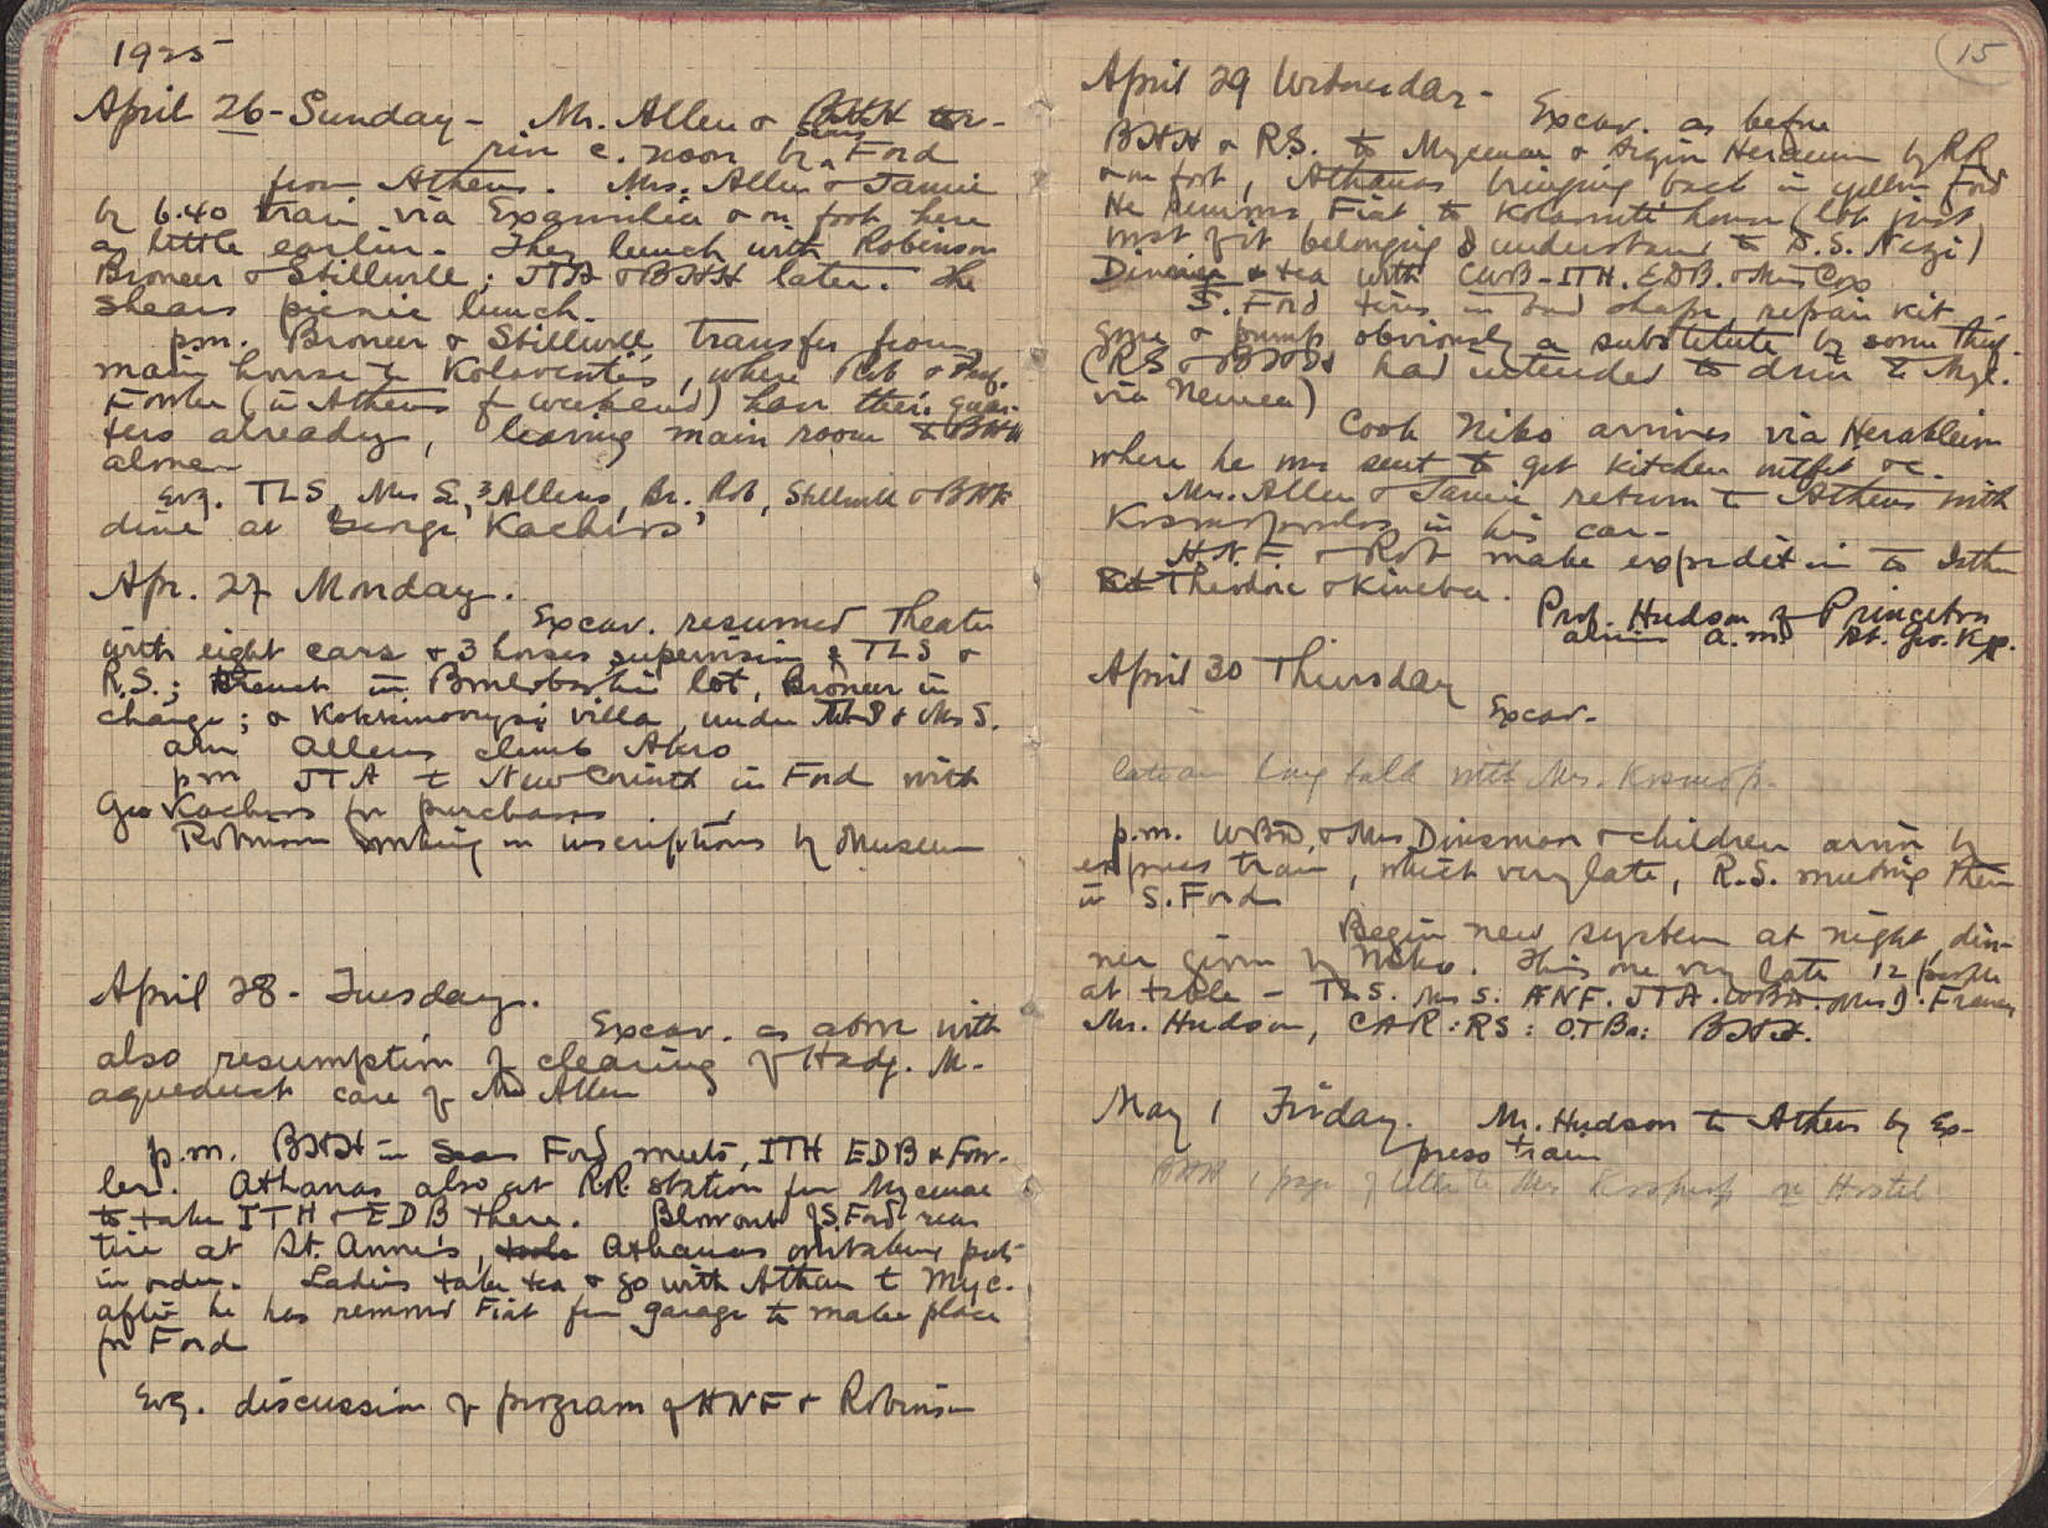 1925
April 26 - Sunday - Mr. Allen & BHH ar-
rive c. noon by Sears Ford
from Athens. Mrs. Allen & Jamie
by 6.40 train via Examilia & on foot here
a little earlier. They lunch with Robinson
Broneer & Stillwell; JTA & BHH later. The
Shears picnic lunch.
p.m. Broneer & Stillwell transfer from
main house to Kolaventis, where Rob & Prof.
Fowler (in Athens for weekend) have their quar-
ters already, leaving main room to BHH
alone
Evg. TLS, Mrs S., 3 Allens, Br. Rob, Stillwell & BHH
dine at George Kachiros'
Apr. 27 Monday.
Excav. resumed Theater
with eight cars & 3 horses supervision of TLS &
R.S.; trench in lot, Broneer in
charge; & Kokkinovrysi villa, under & Mrs S.
am Allens climb Akro
pm JTA to New Corinth in Ford with
Geo Kachiros for purchases
Robinson working on inscriptions by Museum
April 28 - Tuesday.
Excav. as above with
also resumption of clearing of Hadj. M.
aqueduct care of Mr Allen
p.m. BHH in Sears Ford meets ITH EDB & Fow-
ler. Athanas also at RR station from Mycenae
to take ITH & EDB there. Blowout of S. Ford rear
tire at St. Anne's, Athanas puts
in order. Ladies take tea & go with Athan to Myc.
after he has removed Fiat from garage to make place
for Ford
Evg. discussion of program of HNF & Robinson
15
April 29 Wednesday -
Excav. as before
BHH & R.S. to Mycenae & Argive Heraeum by RR
& on foot, Athanas bringing back in yellow Ford
He removes Fiat to Kolaventi house (lot just
west of it belonging I understand to D.S. Nezi)
& tea with CWB - ITH. EDB. & Miss Cox
S. Ford tires in bad shape, repair kit
gone & pump obviously a substitute by some thief.
(RS & BHH had intended to drive to Myc.
via Nemea)
Cook Niko arrives via Herakleion
where he was sent to get kitchen outfit &c.
Mrs. Allen & Jamie return to Athens with
Kosmopoulos in his car -
H.N.F. & Rob make expedition to Isthm
Theodore & Kineta.
Prof. Hudson of Princeton
arrives a.m. At. Geo. K's.
April 30 Thursday
Excav.
late am long talk with Mrs. Kosmop.
p.m. WBD, & Mrs Dinsmoor & children arrive by
express train, which very late, R.S. meeting them
in S. Ford
Begin new system at night, din-
ner given by Niko. This one very late 12 people
at table - TLS. Mrs S. HNF. JTA. WBD. Mrs D. Frances
Mr. Hudson, CAR: RS: O.T.Br: BHH.
May 1 Friday. Mr. Hudson to Athens by Ex-
press train
BHH 1 page of letter to Mrs re Hostel